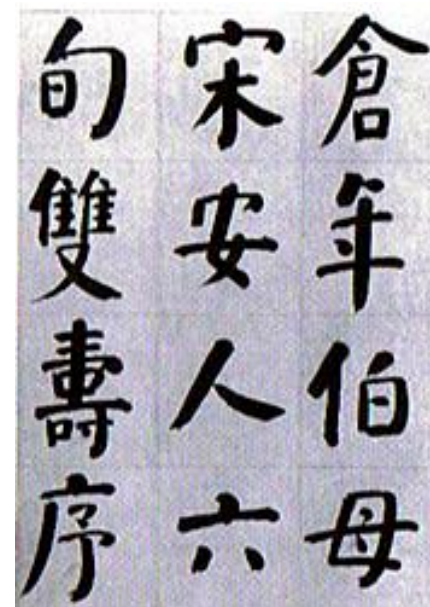 倉年伯母
宋安人六
旬雙壽序